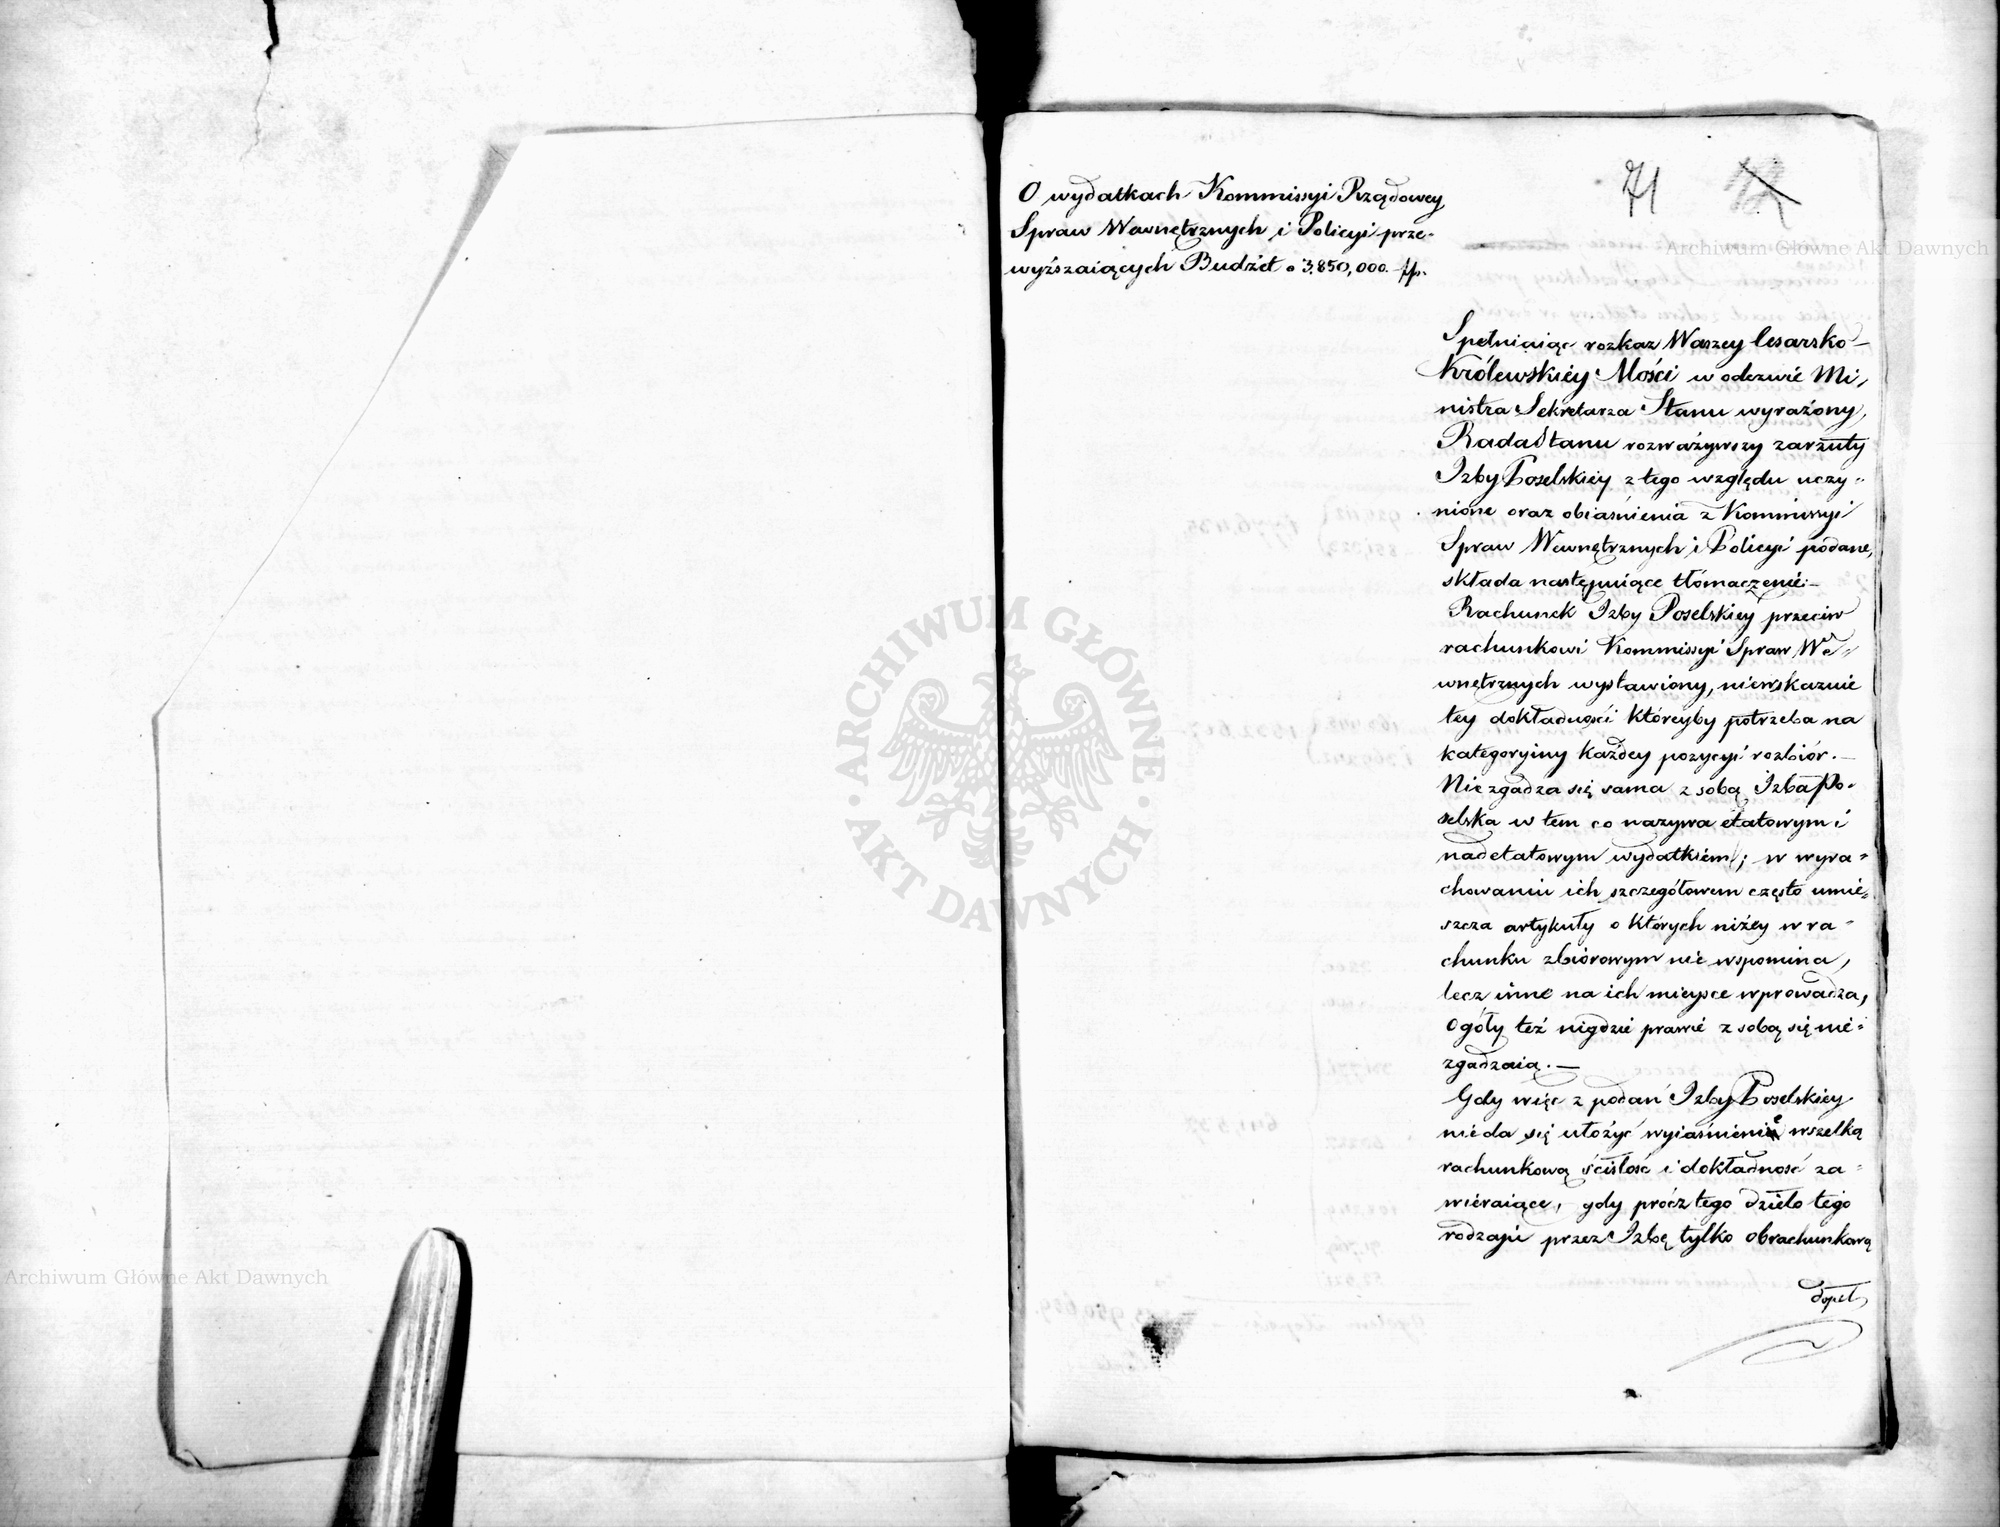 71
O wydatkach Kommissyi Rządowey
Spraw Wewnętrznych i Policyi prze-
wyższaiących Budżet o 3,850,000. złp.
Spełniaiąc rozkaz Waszey Cesarsko-
Królewskiéy Mości w odezwie Mi,
nistra Sekretarza Stanu wyrażony,
Rada Stanu rozważywszy zarzuty
Izby Poselskiey z tego względu uczy-
nione oraz obiaśnienia z Kommissyi
Spraw Wewnętrznych i Policyi podane,
składa następuiące tłómaczenie:-
Rachunek Izby Poselskiey przeciw
rachunkowi Kommissyi Spraw We-
wnętrznych wystawiony, niewskazuie
tey dokładności któreyby potrzeba na
kategoryiny każdey pozycyi rozbiór. -
Nie zgadza się sama z sobą Izba Po-
selska w tem co nazywa etatowym i
nadetatowym wydatkiem; w wyra-
chowaniu ich szczegółowem często umie-
szcza artykuły o których niżey w ra-
chunku zbiorowym nie wspomina,
lecz inne na ich mieysce wprowadza,
Ogóły też nigdzie prawie z sobą się nie-
zgadzaią. -
Gdy więc z podań Izby Poselskiey
nieda się ułożyć wyiaśnienie wszelką
rachunkową ścisłość i dokładność za-
wieraiące, gdy prócz tego dzieło tego
rodzaju przez Izbę tylko obrachunkową
dopeł,
Archiwum Główne Akt Dawnych
ARCHIWUM GŁÓWNE
· AKT DAWNYCH ·
Archiwum Główne Akt Dawnych